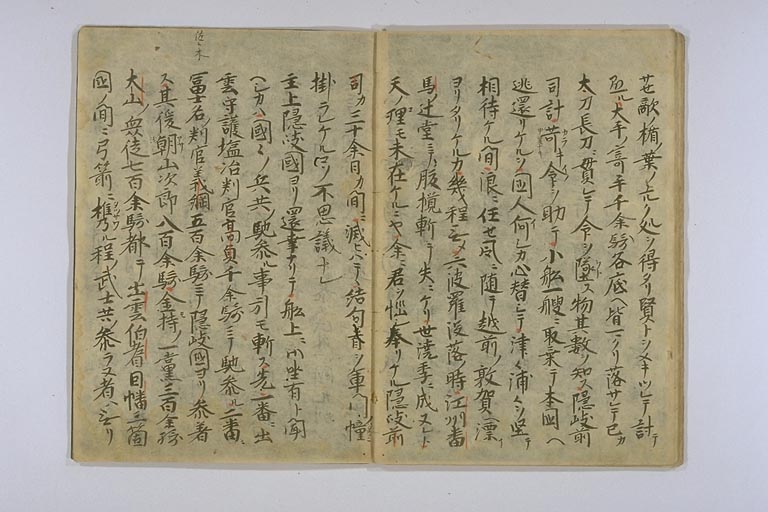 芝敵楯ノ葉ノヒルク処ヲ得タリ賢トメキツレテ討テ
懸ル大手ノ寄手千余騎谷底ヘ皆マクリ落サレテ己カ
太刀長刀ニ貫レテ命ヲ墮ス物其数ヲ知ス隠岐前
司計苛命ヲ助テ小船一艘ニ取乗テ本国ヘ
逃還リケルヲ国人何レカ心替シテ津々浦々ヲ堅テ
相待ケル間浪ニ任セ風ニ随テ越前ノ敦賀ヘ漂
ヨリタリケルカ幾程モ無メ六波羅没落時江州番
馬ノ辻堂ニテ腹搔斬テ失ニケリ世澆季ニ成ヌレト
天ノ理モ未在ケルニヤ余ニ君ヲ悩シ奉リケル隠岐前
司カ三十余日カ間ニ滅ヒハテヽ結句首ヲ軍門ノ幢ニ
掛ラレケルコソ不思議ナレ
主上隠岐國ヨリ還幸ナリテ船上ニ御坐有ト聞
ヘシカハ國々ノ兵共ノ馳参ル事引モ斬ス先一番ニ出
雲守護塩冶判官高貞千余騎ニテ馳参ル二番ニ
佐々木
冨士名判官義綱五百余騎ニテ隠岐國ヨリ参着
ス其後朝山次郎八百余騎金持ノ一黨三百余騎
大山ノ衆徒七百余騎都テ出雲伯耆因幡三箇
國ノ間ニ弓箭ニ携ル程武士共ノ参ラヌ者ハ無リ